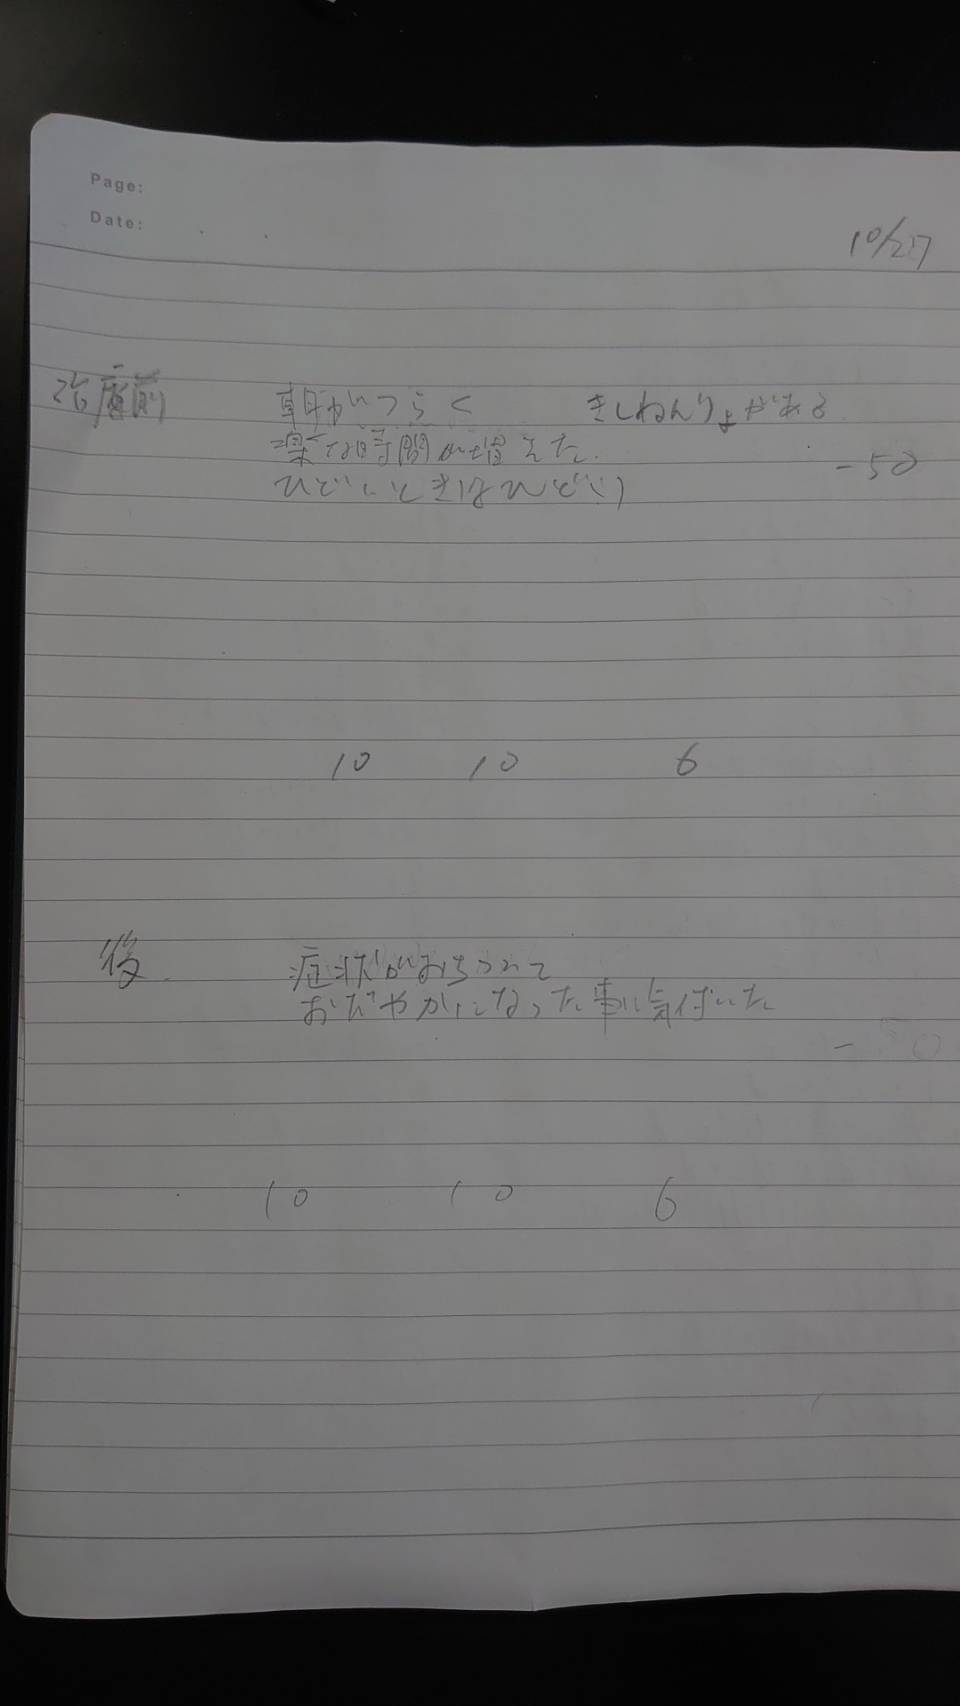 Page:
Date: . .
10/27
治療前 朝がつらく きしねんりょがある
楽な時間が増えた.
-50
ひどいときはひどい
10 10 6
後. 症状がおちついて
おだやかになった事に気付いた
- 50
10 10 6